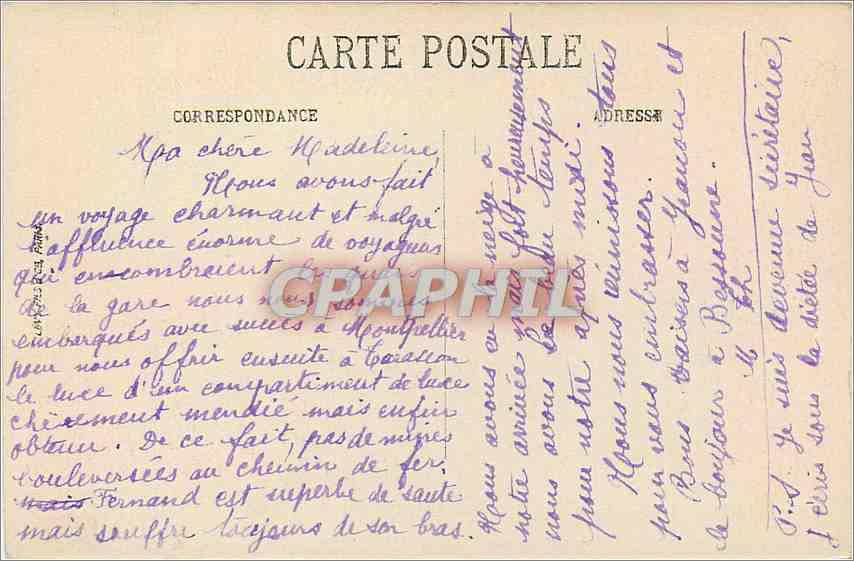 CARTE POSTALE
CORRESPONDANCE
ADRESSE
Ma chère Madeleine,
Nous avons fait
un voyage charmant et malgré
l'affluence énorme de voyageurs
qui encombraient les quais
de la gare nous nous sommes
embarqués avec succès à Montpellier
pour nous offrir ensuite à Tarascon
le luxe d'un compartiment de luxe
chèrement mendié mais enfin
obtenu. De ce fait, pas de mines
bouleversées au chemin de fer.
mais Fernand est superbe de santé
mais souffre toujours de son bras.
Nous avons eu la neige à
notre arrivée mais fort heureusement
nous avons le beau temps
pour notre après midi.
Nous nous réunissons tous
pour vous embrasser.
Bons baisers à Yanou et
le bonjour à Bessonne.
M th
P.S. Je suis devenue secrétaire,
j'écris sous la dictée de Jean
LEVY FILS & CIE, PARIS
CPAPHIL